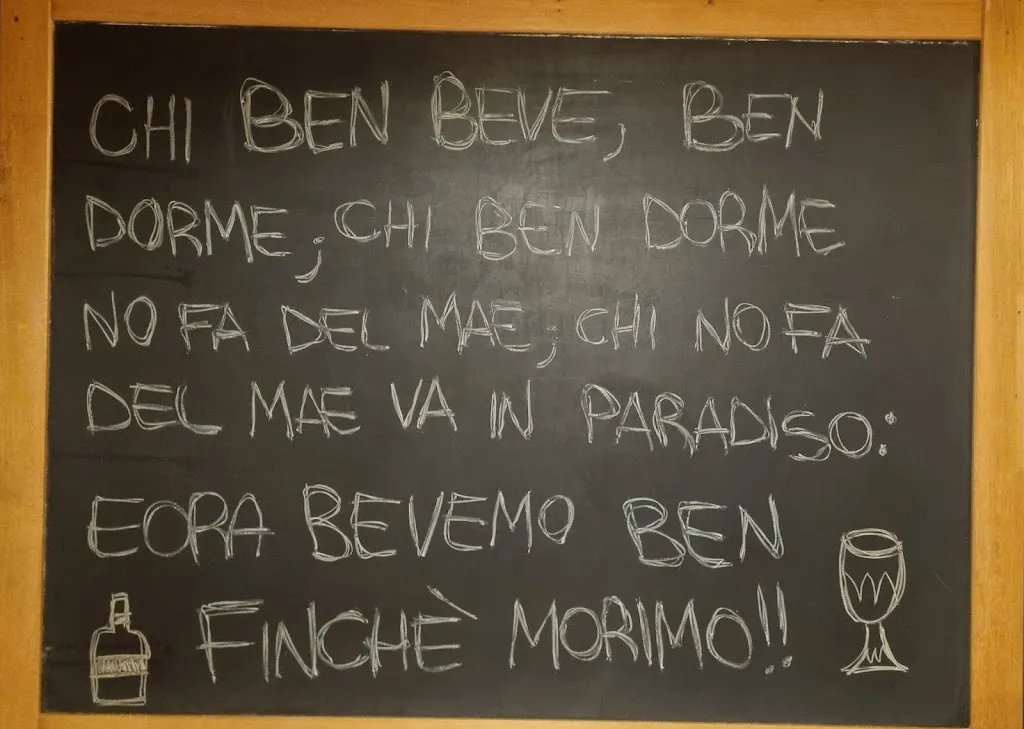 CHI BEN BEVE, BEN
DORME; CHI BEN DORME
NO FA DEL MAE; CHI NO FA
DEL MAE VA IN PARADISO:
EORA BEVEMO BEN
FINCHÈ MORIMO!!